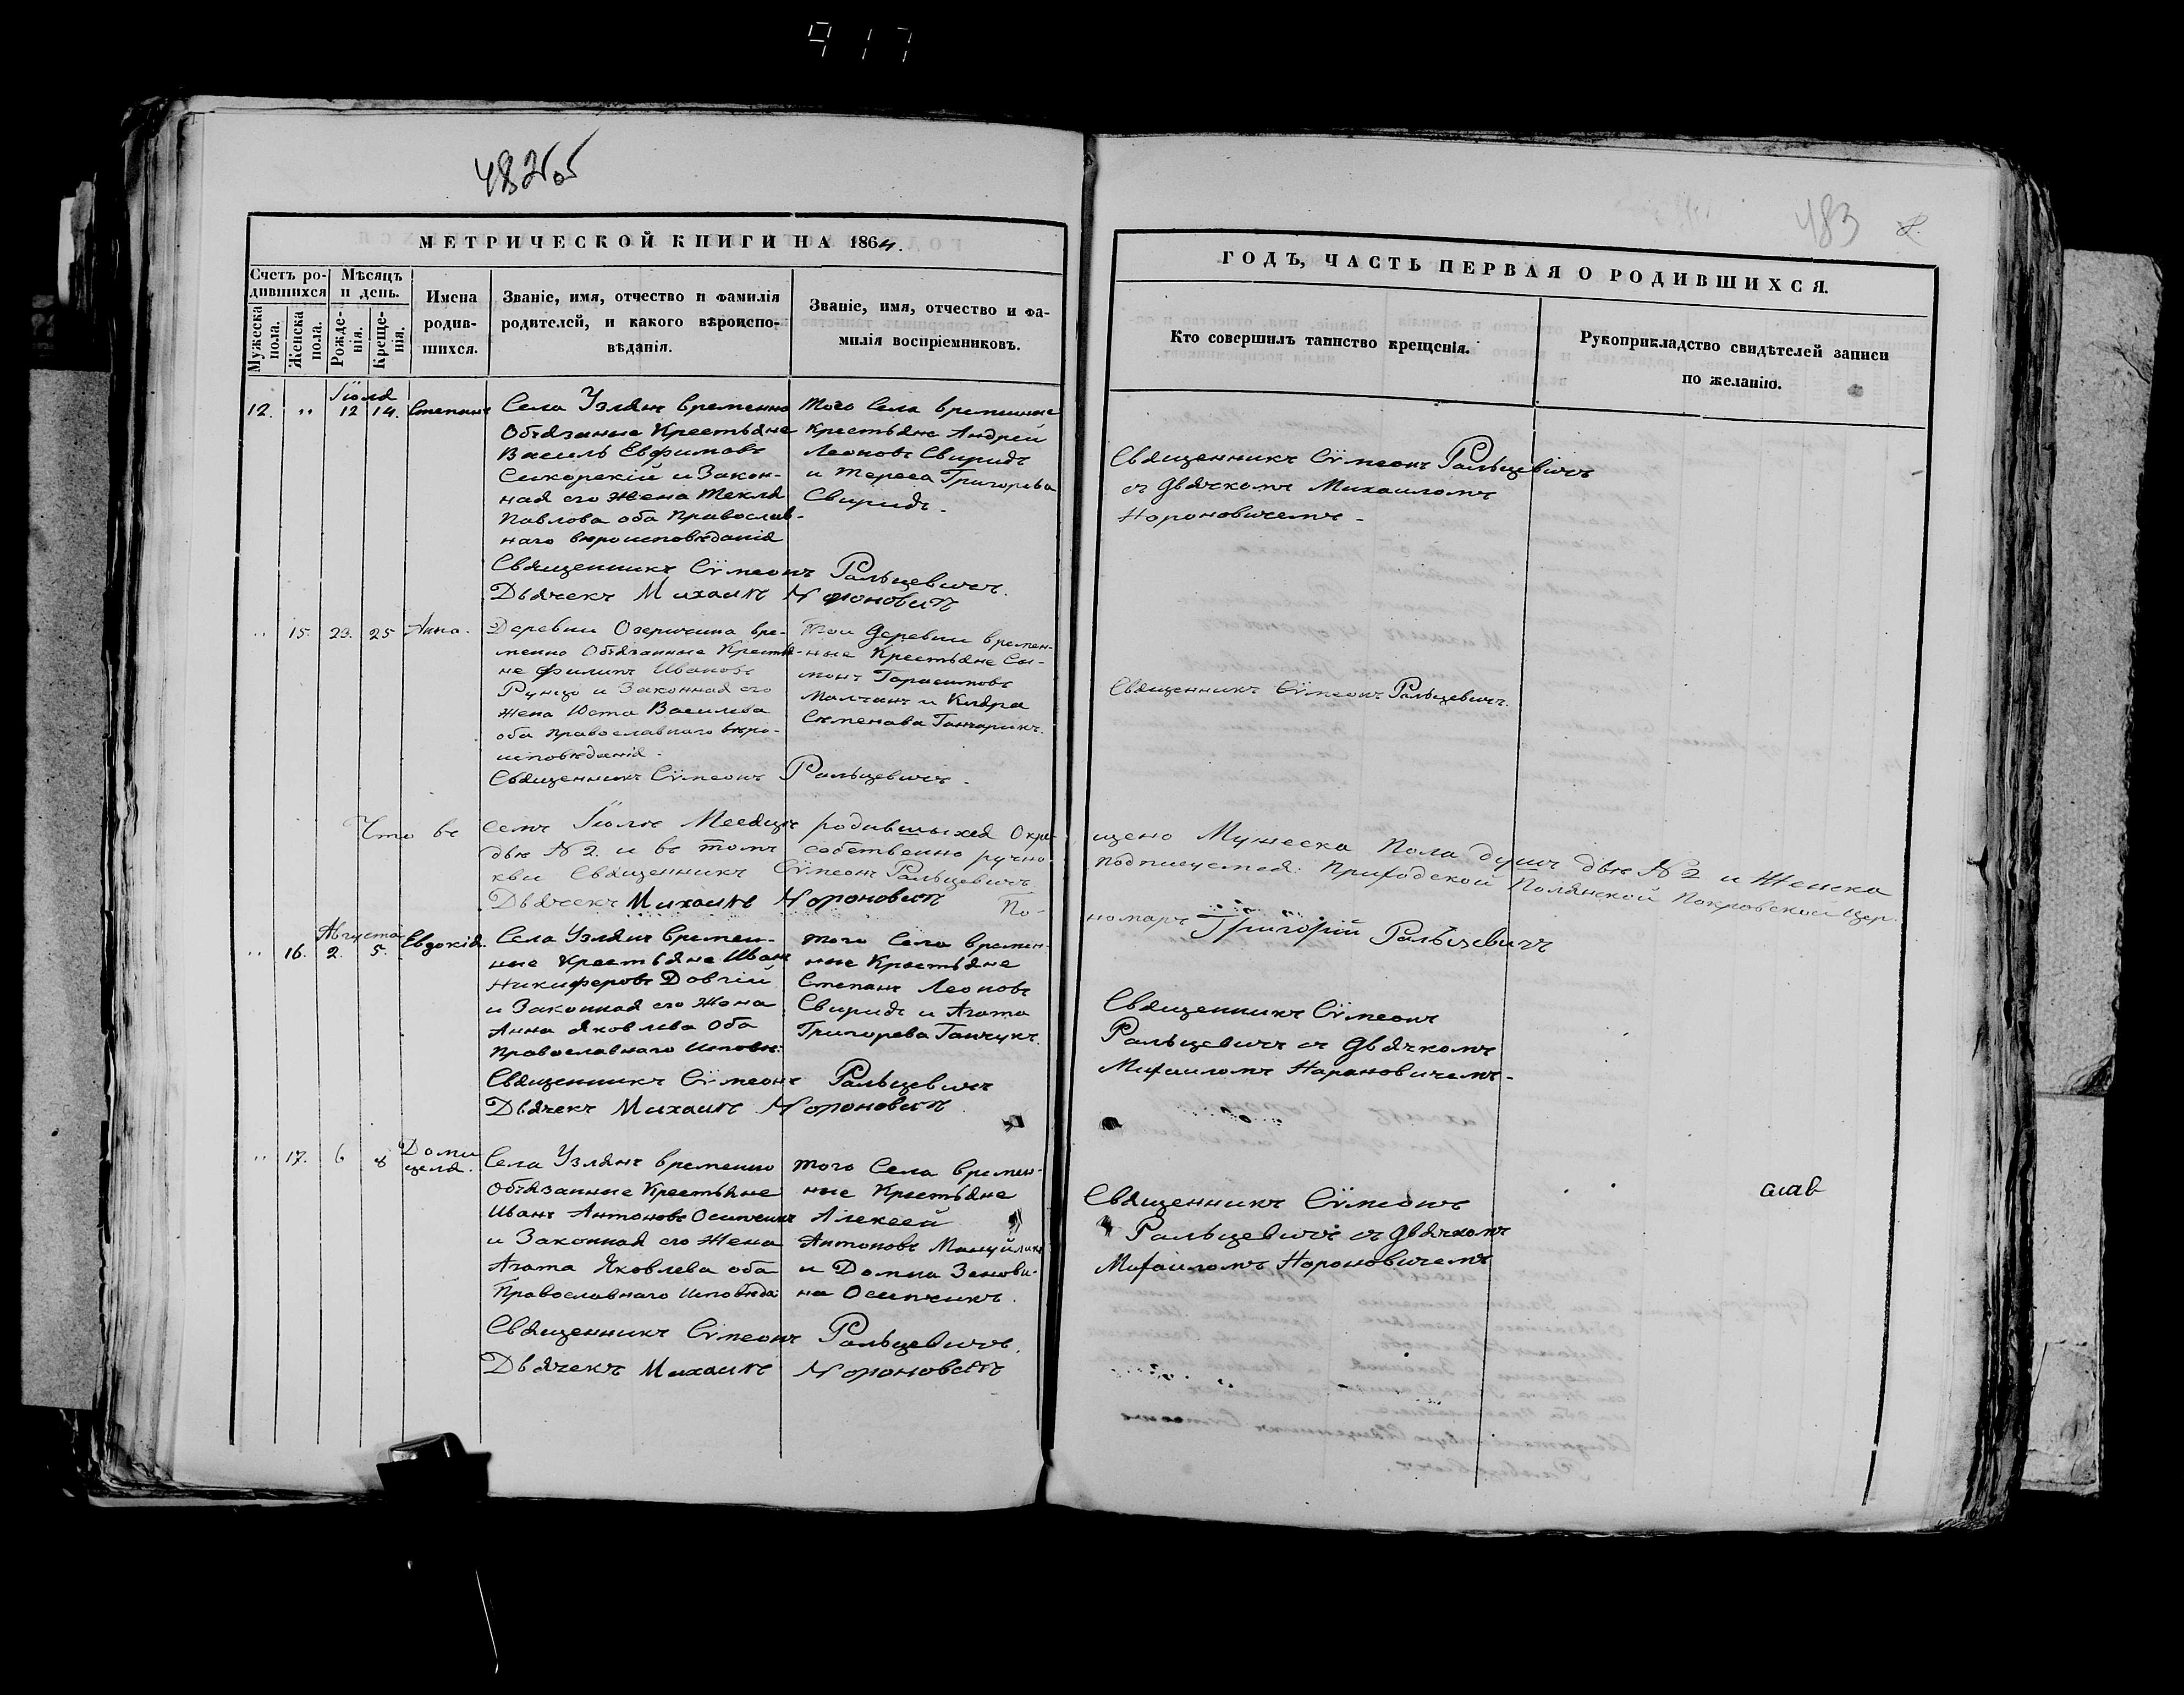 917
483
МЕТРИЧЕСКОЙ КНИГИ НА 1864.
Счетъ родившихся
Мѣсяцъ и день.
Мужеска пола.
Женска пола.
Рожденія.
Крещенія.
Имена родившихся.
Званіе, имя, отчество и фамилія
родителей, и какого вѣроиспо-
вѣданія.
Званіе, имя, отчество и фа-
милія воспріемниковъ.
ГОДЪ, ЧАСТЬ ПЕРВАЯ О РОДИВШИХСЯ.
Кто совершилъ таинство крещенія.
Рукоприкладство свидѣтелей записи
по желанію.
Іюля
12. " 12 14. Степанъ
Села Узлянъ временно
Обязаные Крестьяне
Василь Евфимовъ
Сикорскій и Закон-
ная его жена Текля
Павлова оба Православ-
наго вѣроисповѣданія
Того Села временные
Крестьяне Андрей
Леоновъ Свиридъ
и Тереса Григорева
Свиридъ.
Священникъ Сѵмеонъ Ральцевичъ
съ Дьячкомъ Михаиломъ
Нороновичемъ.
Священникъ Сѵмеонъ Ральцевичъ.
Дьячекъ Михаилъ Нороновичъ
" 15. 23. 25 Анна.
Деревни Озеричина вре-
менно Обязанные Крестья-
не Филипъ Ивановъ
и Законная его
Жена Юста Василева
оба Православнаго вѣро-
исповѣданія.
Той Деревни времен-
ные Крестьяне Си-
монъ Гарасимовъ
Малчанъ и Кидра
Семенава Ганчарикъ.
Священникъ Сѵмеонъ Ральцевичъ.
Священникъ Сѵмеонъ Ральцевичъ.
Что въ семъ Іюлѣ Месяцѣ родившыхся Окре-
щено Мужеска Пола душъ двѣ № 2 и Женска
двѣ № 2. и въ томъ собственно ручно
подписуемся: Приходской Полянской Покровской Цер-
кви Священникъ Сѵмеонъ Ральцевичъ
Дьячекъ Михаилъ Нороновичъ По-
номаръ Григорій Ральцевичъ
Августа
" 16. 2. 5. Евдокія.
Села Узлянъ времен-
ные Крестьяне Иванъ
Никифоровъ Довгій
и Законная его Жена
Анна Яковлева Оба
Православнаго Исповѣ:
того Села времен-
ные Крестьяне
Степанъ Леоновъ
Свиридъ и Агата
Григорева Ганчукъ.
Священникъ Сѵмеонъ
Ральцевичъ съ Дьячкомъ
Михаиломъ Нароновичемъ.
Священникъ Сѵмеонъ Ральцевичъ
Дьячекъ Михаилъ Нороновичъ
" 17. 6 8 Доми
целя.
Села Узлянъ временно
Обязанные Крестьяне
Иванъ Антоновъ Осипчикъ
и Законная его Жена
Агата Яковлева оба
Православнаго Исповѣда
того Села времен-
ные Крестьяне
Алексей
Антоновъ Мануйликъ
и Домна Зенови-
на Осипчикъ.
Священникъ Сѵмеонъ
Ральцевичъ съ Дьячкомъ
Михаиломъ Нороновичемъ
Священникъ Сѵмеонъ Ральцевичъ.
Дьячекъ Михаилъ Нороновичъ